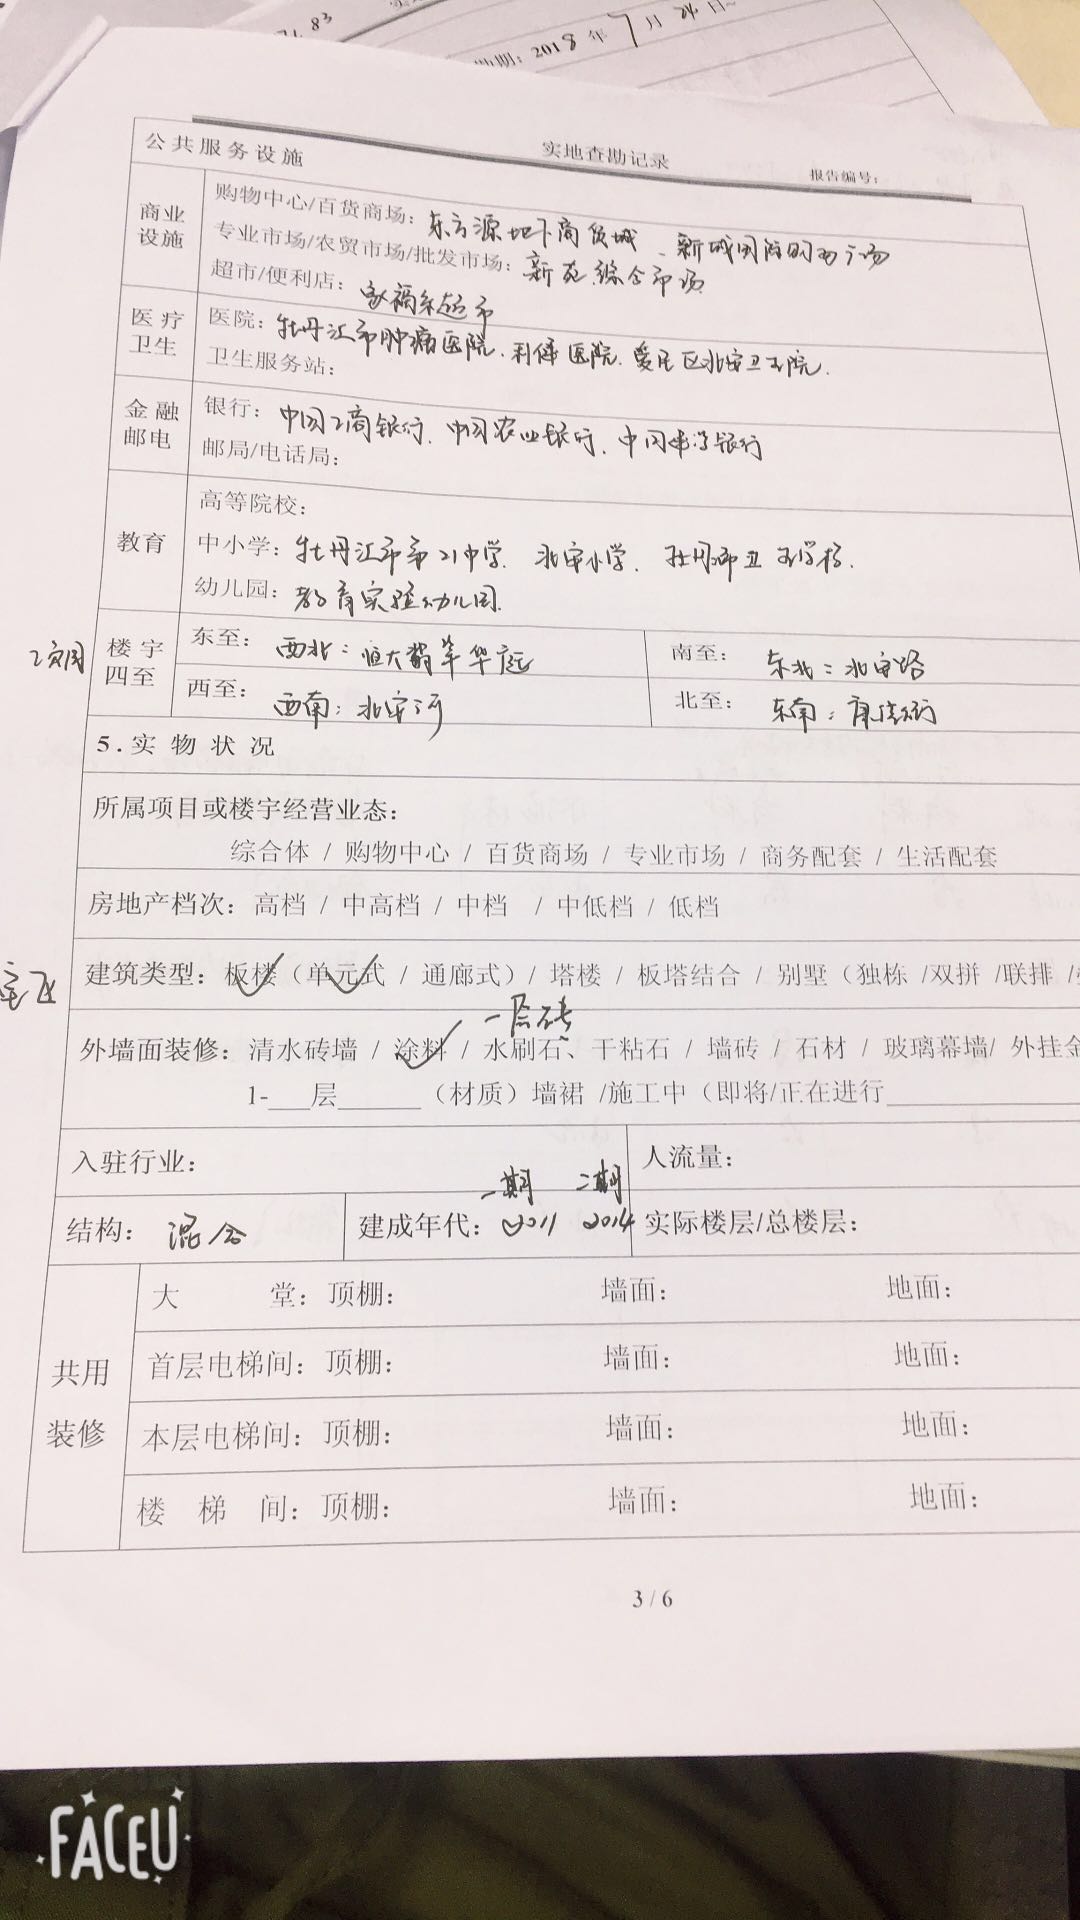 71.83
期：2018年7月24日
实地查勘记录
报告编号：
公共服务设施
商业设施
购物中心/百货商场：东方源地下商贸城、新城国际购物广场
专业市场/农贸市场/批发市场：新苑综合市场
超市/便利店：家福乐超市
医疗卫生
医院：牡丹江市肿瘤医院、利体医院、爱民区北安卫生院.
卫生服务站：
金融邮电
银行：中国工商银行、中国农业银行、中国建设银行
邮局/电话局：
教育
高等院校：
中小学：牡丹江市第21中学、北安小学、牡丹江市卫生学校.
幼儿园：教育实验幼儿园.
楼宇四至
东至：西北：恒大翡翠华庭
南至：东北：北安路
西至：西南：北安河
北至：东南：康佳街
5.实物状况
所属项目或楼宇经营业态：
综合体 / 购物中心 / 百货商场 / 专业市场 / 商务配套 / 生活配套
房地产档次：高档 / 中高档 / 中档 / 中低档 / 低档
建筑类型：板楼（单元式 / 通廊式）/ 塔楼 / 板塔结合 / 别墅（独栋 /双拼 /联排 /
一层砖
外墙面装修：清水砖墙 / 涂料 / 水刷石、干粘石 / 墙砖 / 石材 / 玻璃幕墙/ 外挂金
1-___层______（材质）墙裙 /施工中（即将/正在进行____________
入驻行业：
人流量：
一期 二期
结构：混合
建成年代：2011 2014
实际楼层/总楼层：
共用装修
大堂：顶棚： 墙面： 地面：
首层电梯间：顶棚： 墙面： 地面：
本层电梯间：顶棚： 墙面： 地面：
楼梯间：顶棚： 墙面： 地面：
3 / 6
FACEU